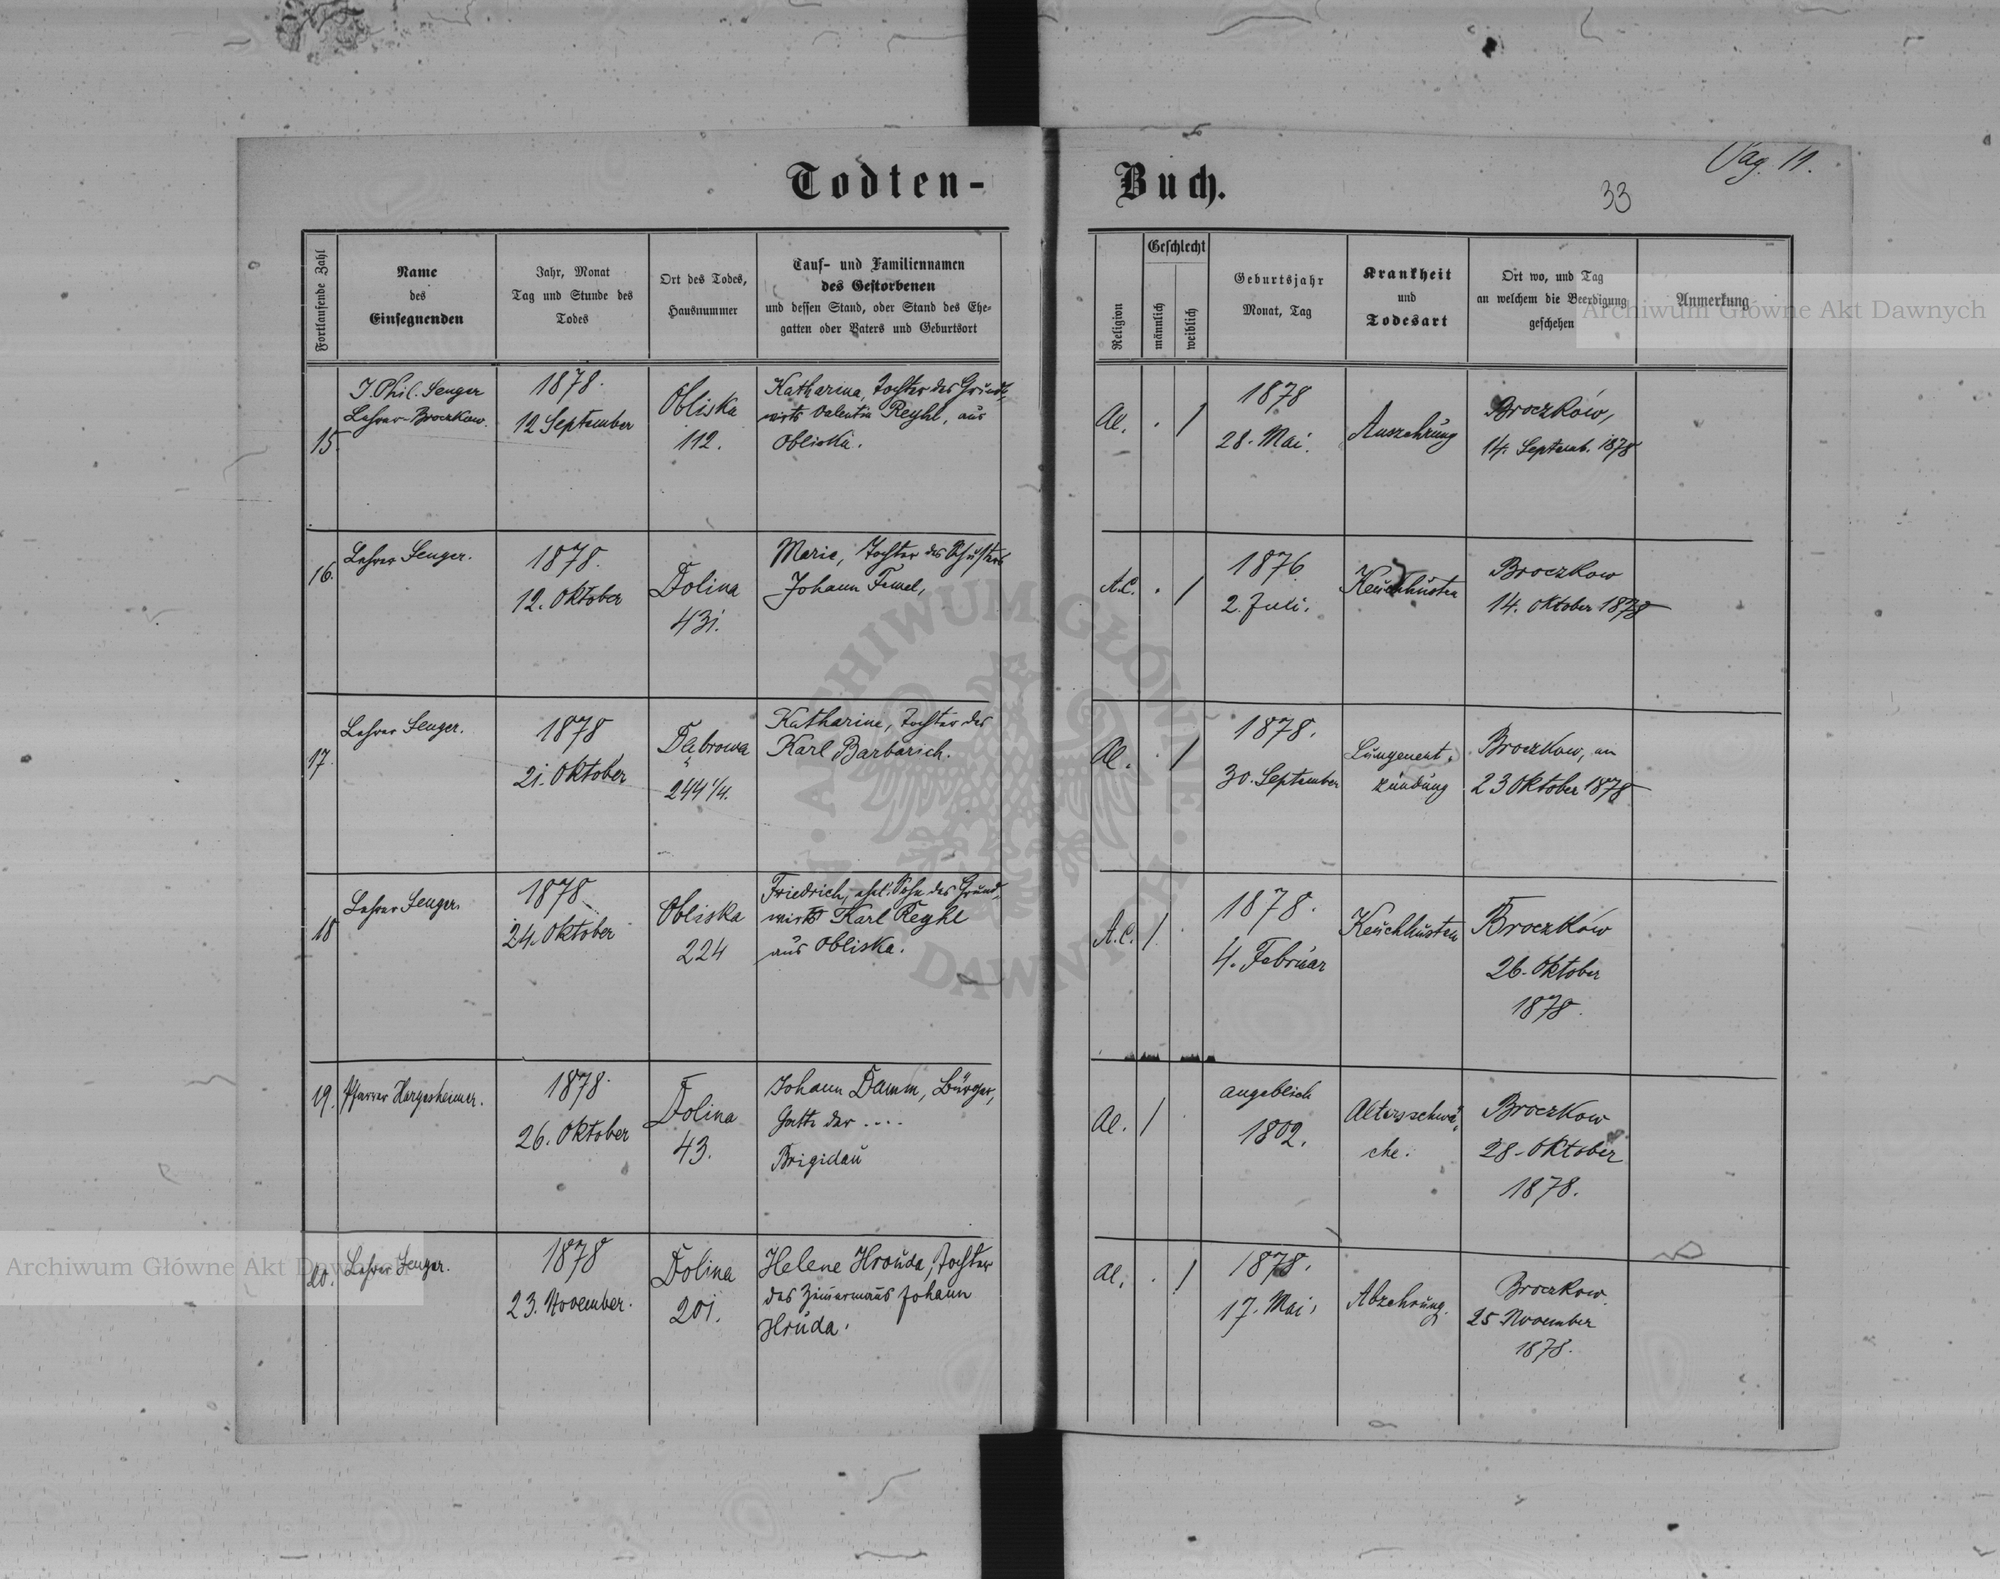 Todten-Buch.
Pag. 11.
33
Fortlaufende Zahl
Name
des
Einsegnenden
Jahr, Monat
Tag und Stunde des
Todes
Ort des Todes,
Hausnummer
Tauf- und Familiennamen
des Gestorbenen
und dessen Stand, oder Stand des Ehe-
gatten oder Vaters und Geburtsort
Religion
Geschlecht
männlich
weiblich
Geburtsjahr
Monat, Tag
Krankheit
und
Todesart
Ort wo, und Tag
an welchem die Beerdigung
geschehen
Anmerkung
15.
J. Phil. Senger
Lehrer Broczkow.
1878.
12 September
Obliska
112.
Katharina, Tochter des Grund-
wirts Valentin Reyhl, aus
Obliska.
Ae. . /
1878
28. Mai.
Auszehrung
Broczków,
14. Septemb. 1878
16.
Lehrer Senger.
1878.
12. Oktober
Dolina
431.
Marie, Tochter des Schusters
Johann
A.C. . /
1876
2. Juli.
Keuchhusten
Broczkow
14. Oktober 1878
17.
Lehrer Senger.
1878
21. Oktober
Dąbrowa
244 1/4.
Katharine, Tochter des
Karl Barbarich.
Ae. . /
1878.
30. September
Lungenent-
zündung
Broczkow, am
23 Oktober 1878
18
Lehrer Senger.
1878
24. Oktober
Obliska
224
Friedrich, ehel. Sohn des Grund-
wirts Karl Reyhl
aus Obliska.
A.C. / .
1878.
4. Februar
Keuchhusten
Broczków
26. Oktober
1878.
19.
Pfarrer Hargesheimer.
1878.
26. Oktober
Dolina
43.
Johann Damm, Bürger,
Gatte der ....
Brigidau
Ae. / .
angeblich
1802.
Altersschwä-
che.
Broczkow
28. Oktober
1878.
20.
Lehrer Senger.
1878
23. November.
Dolina
201.
Helene Hrouda, Tochter
des Zimermans Johann
Hruda.
Ae. . /
1878.
17. Mai.
Abzehrung.
Broczkow.
25 November
1878.
Archiwum Główne Akt Dawnych
Archiwum Główne Akt Dawnych
ARCHIWUM GŁÓWNE AKT DAWNYCH